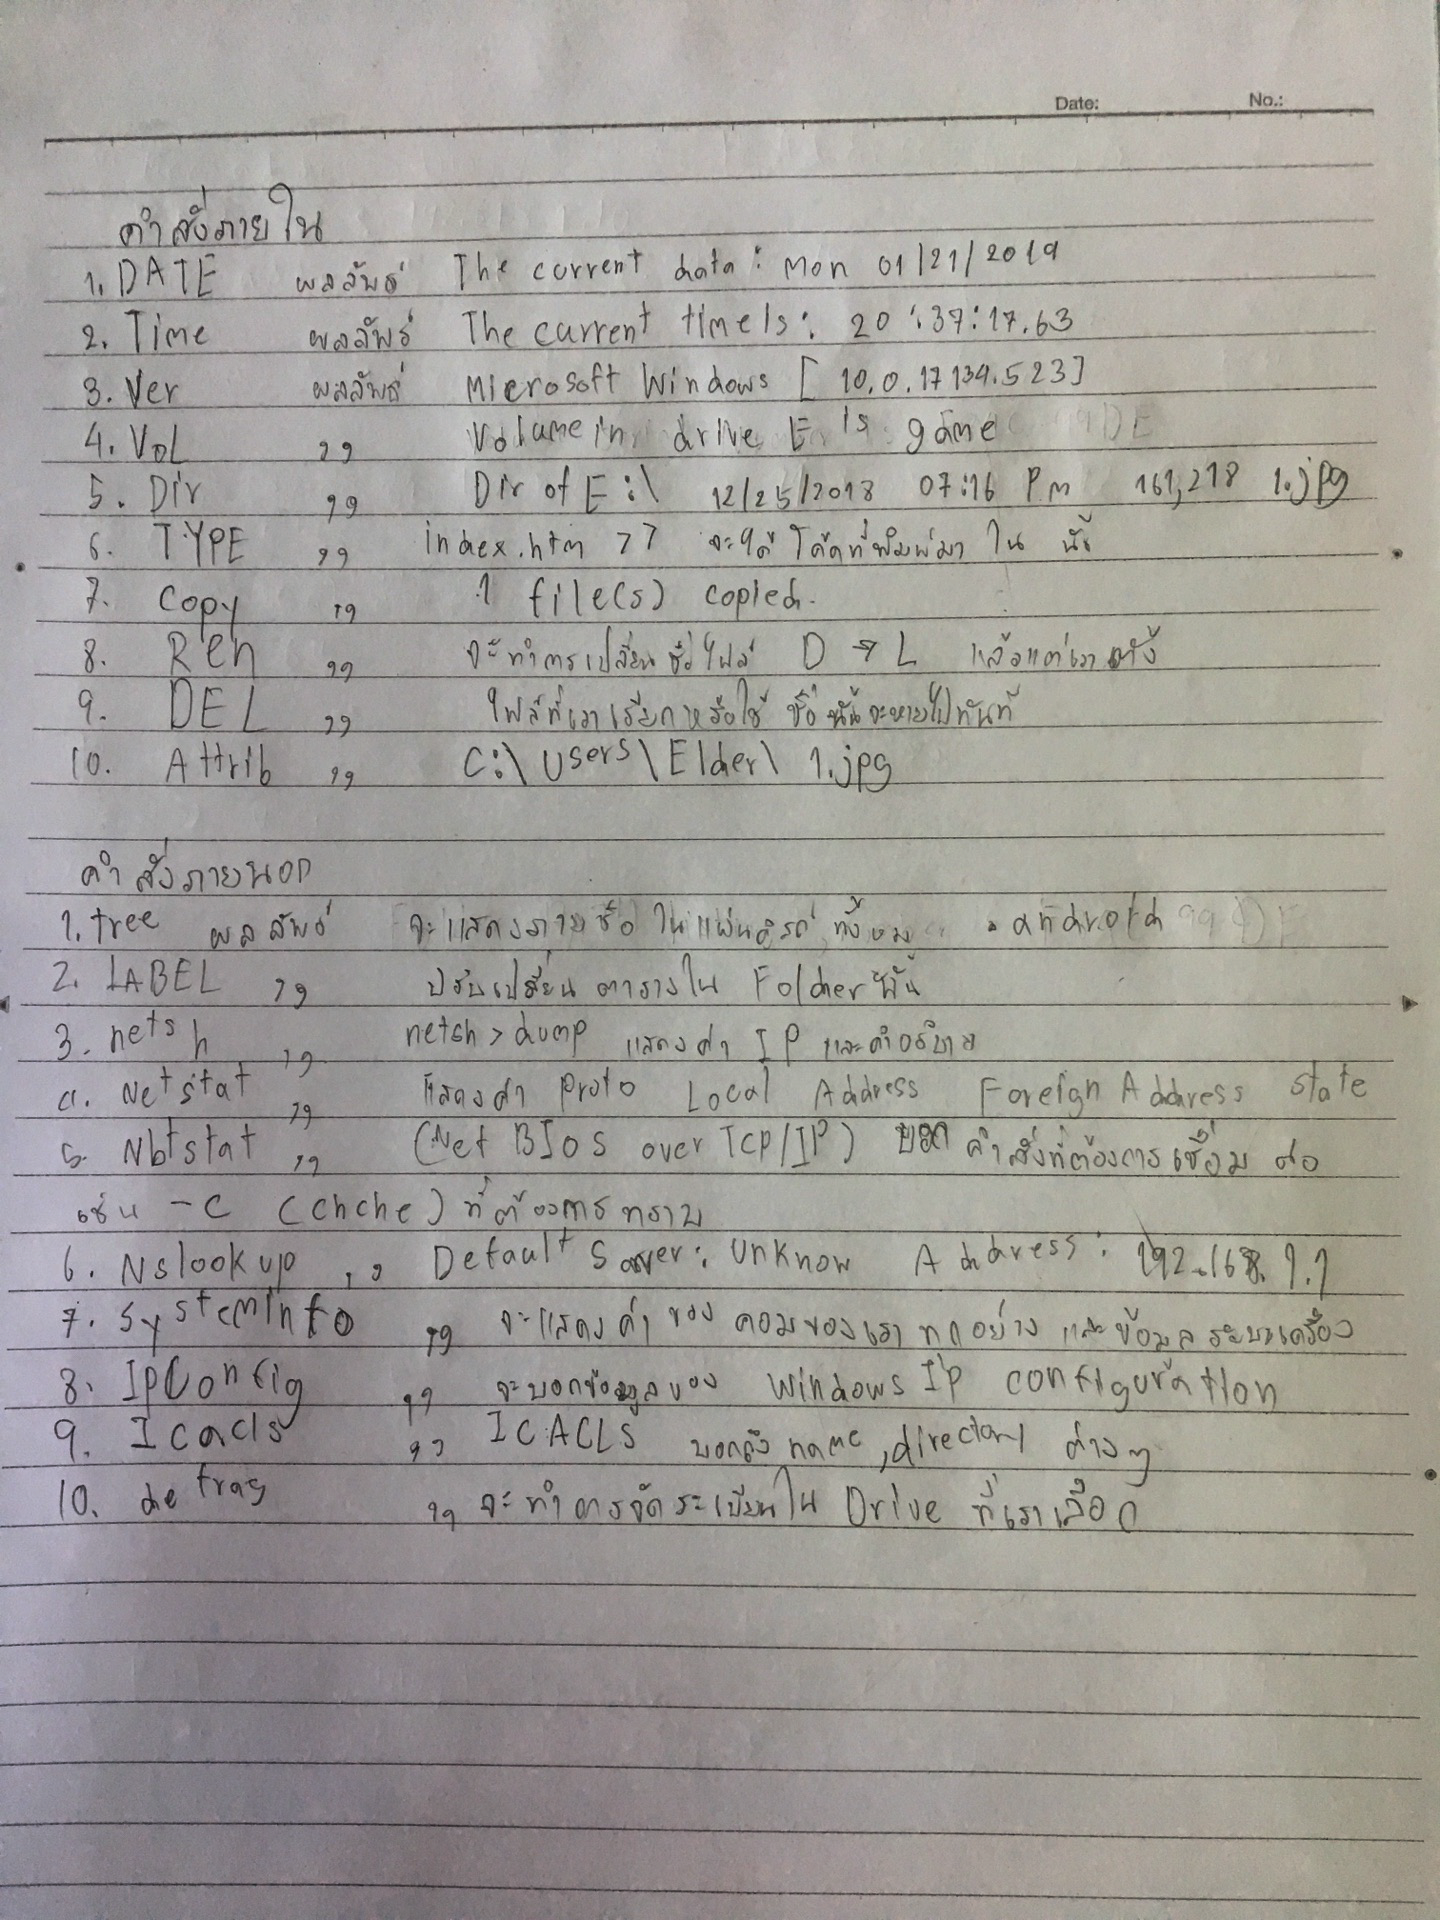 Date: No.:
คำสั่งภายใน
1. DATE ผลลัพธ์ The current data: Mon 01/21/2019
2. Time ผลลัพธ์ The current time is: 20:37:17.63
3. Ver ผลลัพธ์ Microsoft Windows [10.0.17134.523]
4. Vol ,, Volume in drive E is game
5. Dir ,, Dir of E:\ 12/25/2018 07:16 PM 161,218 1.jpg
6. TYPE ,, index.htm >> จะได้โค้ดที่พิมพ์มาใน นั้
7. Copy ,, 1 file(s) copied.
8. Ren ,, จะทำการเปลี่ยนชื่อไฟล์ D → L แล้วแต่เราตั้ง
9. DEL ,, ไฟล์ที่เราเรียกหรือใช้ ชื่อนั้นจะหายไปทันที
10. Attrib ,, C:\Users\Elder\ 1.jpg
คำสั่งภายนอก
1. tree ผลลัพธ์ จะแสดงรายชื่อในแผ่นดิสก์ ทั้งหมด . android
2. LABEL ,, ปรับเปลี่ยน ตารางใน Folder นั้น
3. netsh ,, netsh>dump แสดงค่า IP และคำอธิบาย
4. Netstat ,, แสดงค่า Proto Local Address Foreign Address State
5. Nbtstat ,, (Net BIOS over TCP/IP) บอก คำสั่งที่ต้องการเชื่อม ต่อ
เช่น -C (Chche) ที่ต้องการทราบ
6. Nslookup ,, Default Server: Unknow Address: 192.168.1.1
7. Systeminfo ,, จะแสดงค่า ของ คอมของเราทุกอย่าง และข้อมูล ระบบเครื่อง
8. IpConfig ,, จะบอกข้อมูลของ Windows IP configuration
9. Icacls ,, ICACLS บอกถึง name, directory ต่างๆ
10. defrag ,, จะทำการจัดระเบียบใน Drive ที่เราเลือก